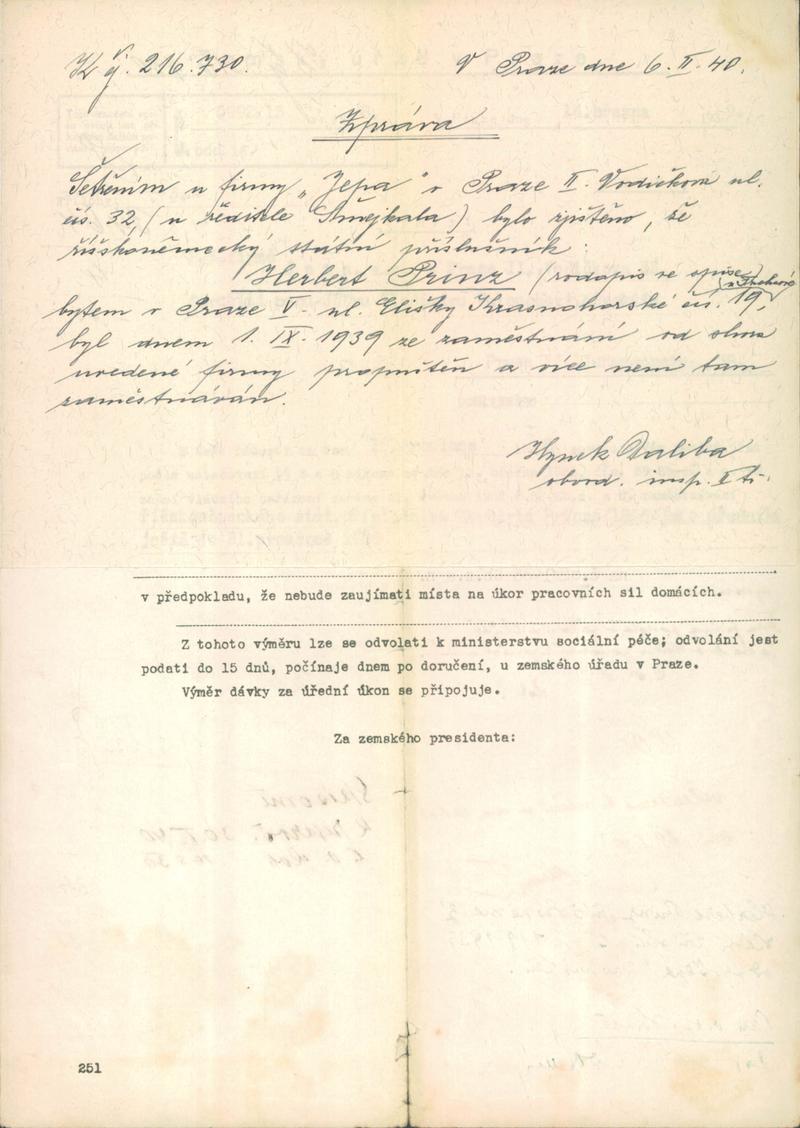 K čj. 216.730. V Praze dne 6. II. 40.
Zpráva
Šetřením u firmy „Jepa“ v Praze II. Vodičkova ul.
čís. 32 (u ředitele Smejkala) bylo zjištěno, že
říšskoněmecký státní příslušník:
Herbert Prinz (rodopis ve spise)
bytem v Praze V. ul. Elišky Krasnohorské čís. 19,
byl dnem 1. IX. 1939 ze zaměstnání od shora
uvedené firmy propuštěn a více není tam
zaměstnáván.
Hynek Daliba
obvod. insp. II tř.
v předpokladu, že nebude zaujímati místa na úkor pracovních sil domácích.
Z tohoto výměru lze se odvolati k ministerstvu sociální péče; odvolání jest
podati do 15 dnů, počínaje dnem po doručení, u zemského úřadu v Praze.
Výměr dávky za úřední úkon se připojuje.
Za zemského presidenta:
251